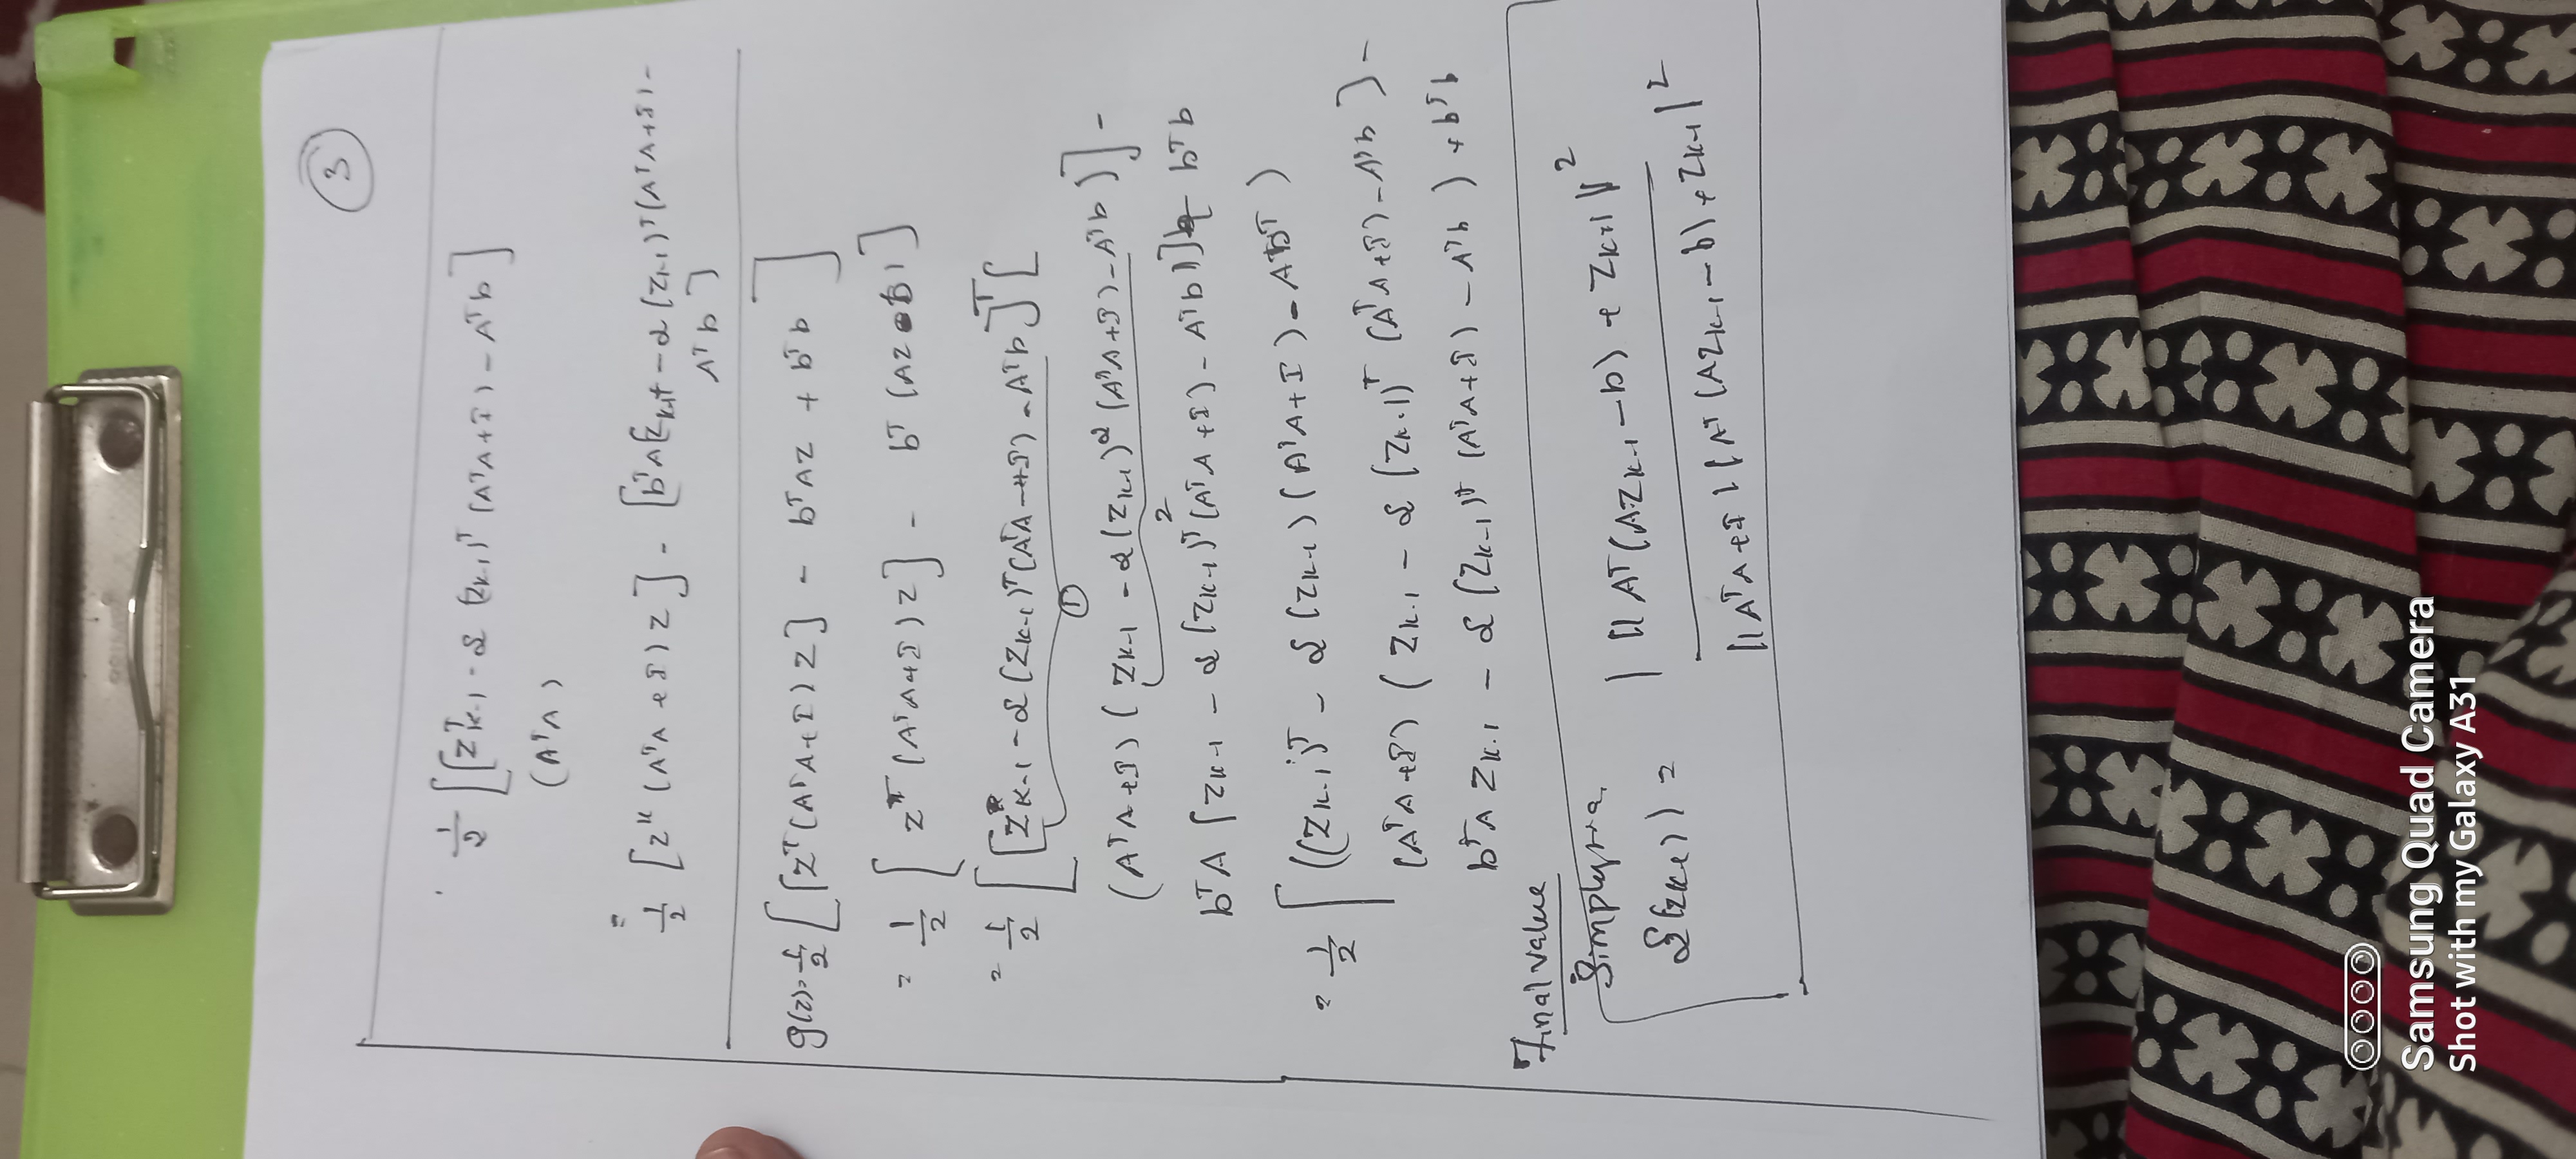 3
1/2 [[Z^T_{k-1} - α (Z_{k-1})^T (A^T A + I) - A^T b]
(A^T A)
=
1/2 [Z^k (A^T A + I) Z] - [b^T A [Z_{k-1} - α (Z_{k-1})^T (A^T A + I) -
A^T b]
g(z) = 1/2 [[Z^T (A^T A + I) Z] - b^T A Z + b^T b]
= 1/2 [Z^T (A^T A + I) Z] - b^T (AZ b)]
= 1/2 [[Z_{k-1} - α (Z_{k-1})^T (A^T A + I) - A^T b]^T [
①
(A^T A + I) (Z_{k-1} - α (Z_{k-1})^α (A^T A + I) - A^T b)] -
2
b^T A [Z_{k-1} - α [Z_{k-1})^T (A^T A + I) - A^T b)] b^T b
= 1/2 [((Z_{k-1})^T - α (Z_{k-1}) (A^T A + I) - A b^T)
(A^T A + I) (Z_{k-1} - α [Z_{k-1})^T (A^T A + I) - A^T b] -
b^T A Z_{k-1} - α [Z_{k-1})^T (A^T A + I) - A^T b) + b^T b
Final value
α(z_{k-1}) = | || A^T (A Z_{k-1} - b) + Z_{k-1} ||^2
|| A^T A + I | [ A^T (A Z_{k-1} - b) + Z_{k-1} |^2
Samsung Quad Camera
Shot with my Galaxy A31